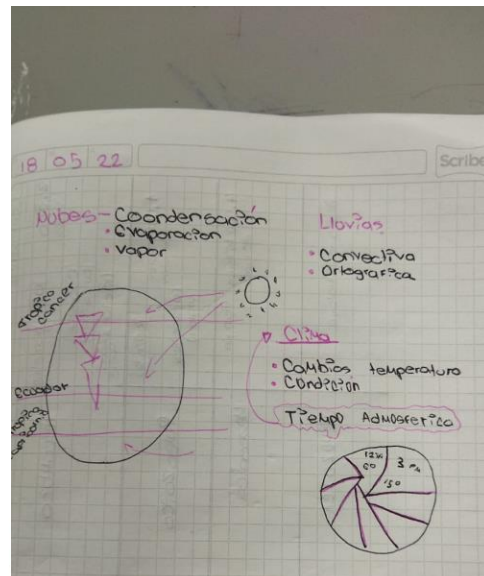 18 05 22
Scribe
Nubes - Coondensación
• Evaporacion
• vapor
Lluvias
• Convectiva
• Ortografica
Tropico
cancer
Ecuador
Clima
• Cambios temperatura
• Condicion
Tiempo Admosferico
3 pm